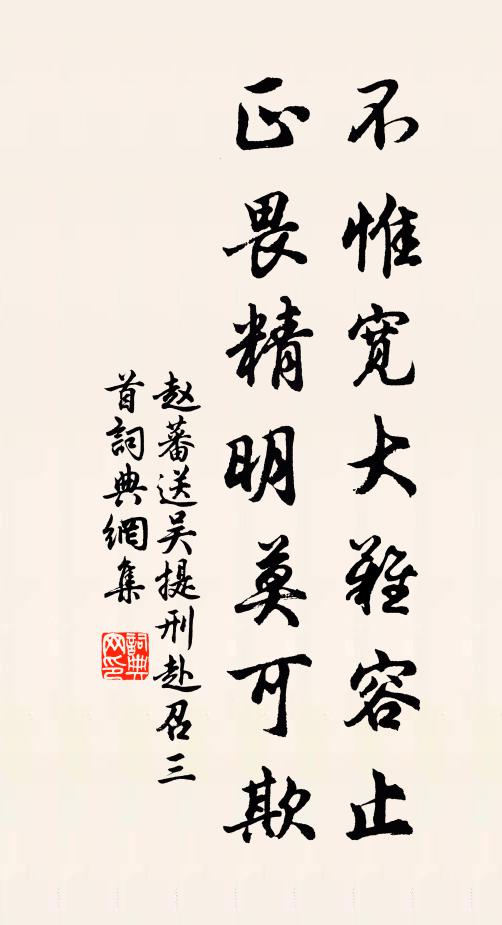 不惟宽大难容止
正畏精明莫可欺
赵蕃送吴提刑赴召三
首词典網集
詞典网印